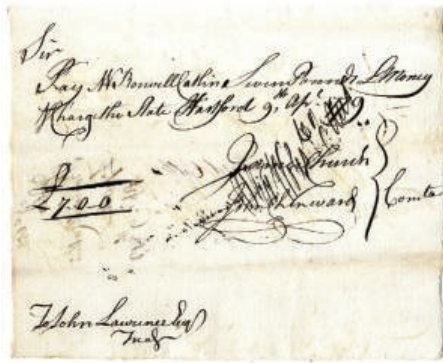 Sir
Pay Mr Roswell Catlin Seven Pounds L Money
& Charge the State Hartford 9th Apl
James Church
Comtee
£7.0.0
To John Lawrence Esq
Treasr